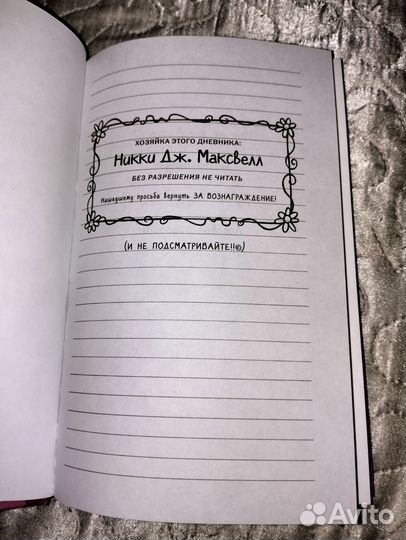 ХОЗЯЙКА ЭТОГО ДНЕВНИКА:
Никки Дж. Максвелл
БЕЗ РАЗРЕШЕНИЯ НЕ ЧИТАТЬ
Нашедшему просьба вернуть ЗА ВОЗНАГРАЖДЕНИЕ!
(И НЕ ПОДСМАТРИВАЙТЕ!!☺)
Avito